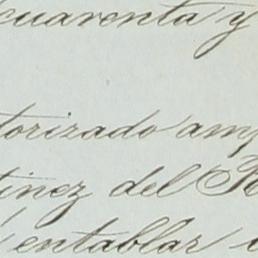 cuarenta y
torizado amp
tinez del R
entablar